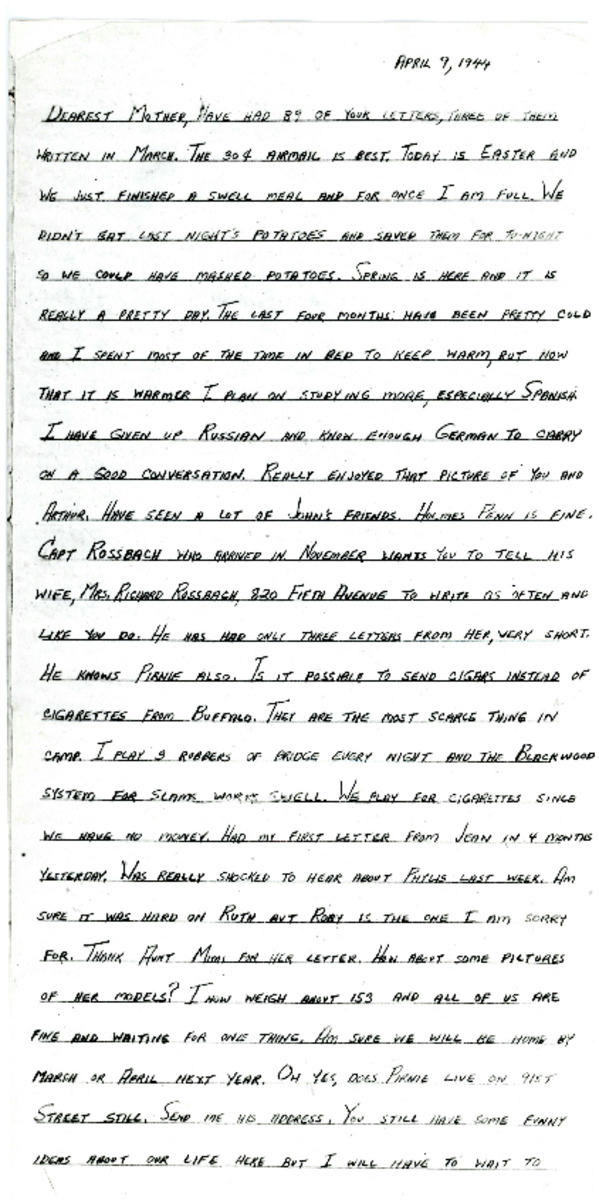 APRIL 9, 1944
DEAREST MOTHER, HAVE HAD 89 OF YOUR LETTERS, THREE OF THEM
WRITTEN IN MARCH. THE 30¢ AIRMAIL IS BEST. TODAY IS EASTER AND
WE JUST FINISHED A SWELL MEAL AND FOR ONCE I AM FULL. WE
DIDN'T EAT LAST NIGHT'S POTATOES AND SAVED THEM FOR TO-NIGHT
SO WE COULD HAVE MASHED POTATOES. SPRING IS HERE AND IT IS
REALLY A PRETTY DAY. THE LAST FOUR MONTHS HAVE BEEN PRETTY COLD
AND I SPENT MOST OF THE TIME IN BED TO KEEP WARM, BUT NOW
THAT IT IS WARMER I PLAN ON STUDYING MORE, ESPECIALLY SPANISH.
I HAVE GIVEN UP RUSSIAN AND KNOW ENOUGH GERMAN TO CARRY
ON A GOOD CONVERSATION. REALLY ENJOYED THAT PICTURE OF YOU AND
ARTHUR. HAVE SEEN A LOT OF JOHN'S FRIENDS. HOLMES PENN IS FINE.
CAPT ROSSBACH WHO ARRIVED IN NOVEMBER WANTS YOU TO TELL HIS
WIFE, MRS. RICHARD ROSSBACH, 820 FIFTH AVENUE TO WRITE AS OFTEN AND
LIKE YOU DO. HE HAS HAD ONLY THREE LETTERS FROM HER, VERY SHORT.
HE KNOWS PIRNIE ALSO. IS IT POSSIBLE TO SEND CIGARS INSTEAD OF
CIGARETTES FROM BUFFALO. THEY ARE THE MOST SCARCE THING IN
CAMP. I PLAY 3 RUBBERS OF BRIDGE EVERY NIGHT AND THE BLACKWOOD
SYSTEM FOR SLAMS WORKS SWELL. WE PLAY FOR CIGARETTES SINCE
WE HAVE NO MONEY. HAD MY FIRST LETTER FROM JEAN IN 4 MONTHS
YESTERDAY. WAS REALLY SHOCKED TO HEAR ABOUT PHYLIS LAST WEEK. AM
SURE IT WAS HARD ON RUTH BUT RORY IS THE ONE I AM SORRY
FOR. THANK AUNT MIMI FOR HER LETTER. HOW ABOUT SOME PICTURES
OF HER MODELS? I NOW WEIGH ABOUT 153 AND ALL OF US ARE
FINE AND WAITING FOR ONE THING. AM SURE WE WILL BE HOME BY
MARCH OR APRIL NEXT YEAR. OH YES, DOES PIRNIE LIVE ON 91ST
STREET STILL. SEND ME HIS ADDRESS. YOU STILL HAVE SOME FUNNY
IDEAS ABOUT OUR LIFE HERE BUT I WILL HAVE TO WAIT TO